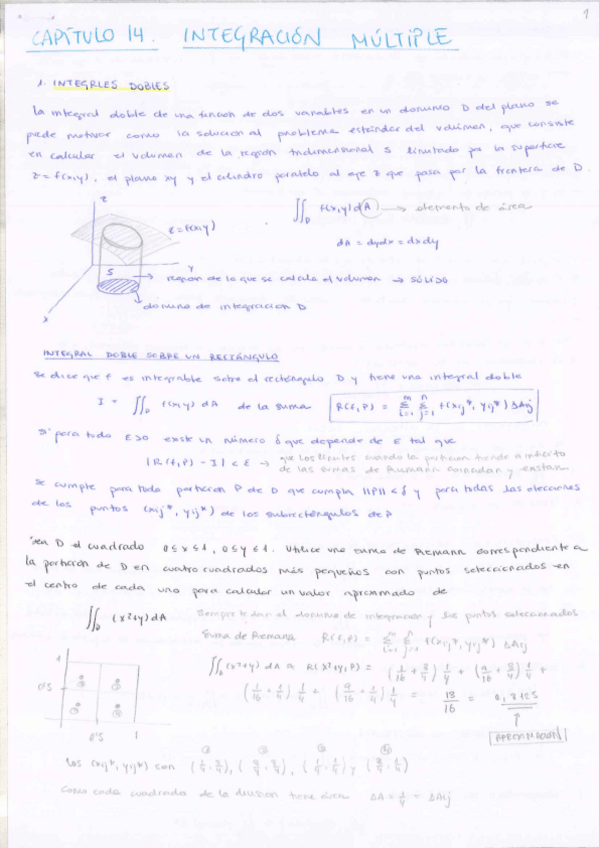 1
CAPÍTULO 14. INTEGRACIÓN MÚLTIPLE
1. INTEGRLES DOBLES
La integral doble de una funcion de dos variables en un dominio D del plano se
puede motivar como la solucion al problema estándar del volumen, que consiste
en calcular el volumen de la region tridimensional S limitada por la superficie
z = f(x,y), el plano xy y el cilindro paralelo al eje z que pasa por la frontera de D.
z
z = f(x,y)
∬_D f(x,y) dA → elemento de área
dA = dydx = dxdy
y
S
region de la que se calcula el volumen → SÓLIDO
dominio de integracion D
x
INTEGRAL DOBLE SOBRE UN RECTÁNGULO
Se dice que f es integrable sobre el rectángulo D y tiene una integral doble
I = ∬_D f(x,y) dA de la suma R(f,P) = Σ_{i=1}^{m} Σ_{j=1}^{n} f(xij*, yij*) ΔAij
Si para todo ε>0 existe un número δ que depende de ε tal que
|R(f,P) - I| < ε → que los límites cuando la particion tiende a infinito
de las sumas de Riemann coincidan y existan.
Se cumple para toda particion P de D que cumpla ||P|| < δ y para todas las elecciones
de los puntos (xij*, yij*) de los subrectángulos de P
Sea D el cuadrado 0≤x≤1, 0≤y≤1. Utilice una suma de Riemann correspondiente a
la particion de D en cuatro cuadrados más pequeños con puntos seleccionados en
el centro de cada uno para calcular un valor aproximado de
∬_D (x²+y) dA
Siempre te dan el dominio de integración y los puntos seleccionados
Suma de Riemann R(f,P) = Σ_{i=1}^{m} Σ_{j=1}^{n} f(xij*, yij*) ΔAij
∬_D (x²+y) dA ≈ R(x²+y,P) = (1/16 + 3/4) 1/4 + (9/16 + 3/4) 1/4 +
(1/16 + 1/4) 1/4 + (9/16 + 1/4) 1/4 = 13/16 = 0,8125
APROXIMACIÓN
1
0'5
① ②
③ ④
0'5 1
① ② ③ ④
Los (xij*, yij*) son (1/4, 3/4), (3/4, 3/4), (1/4, 1/4) y (3/4, 1/4)
Como cada cuadrado de la division tiene área ΔA = 1/4 = ΔAij